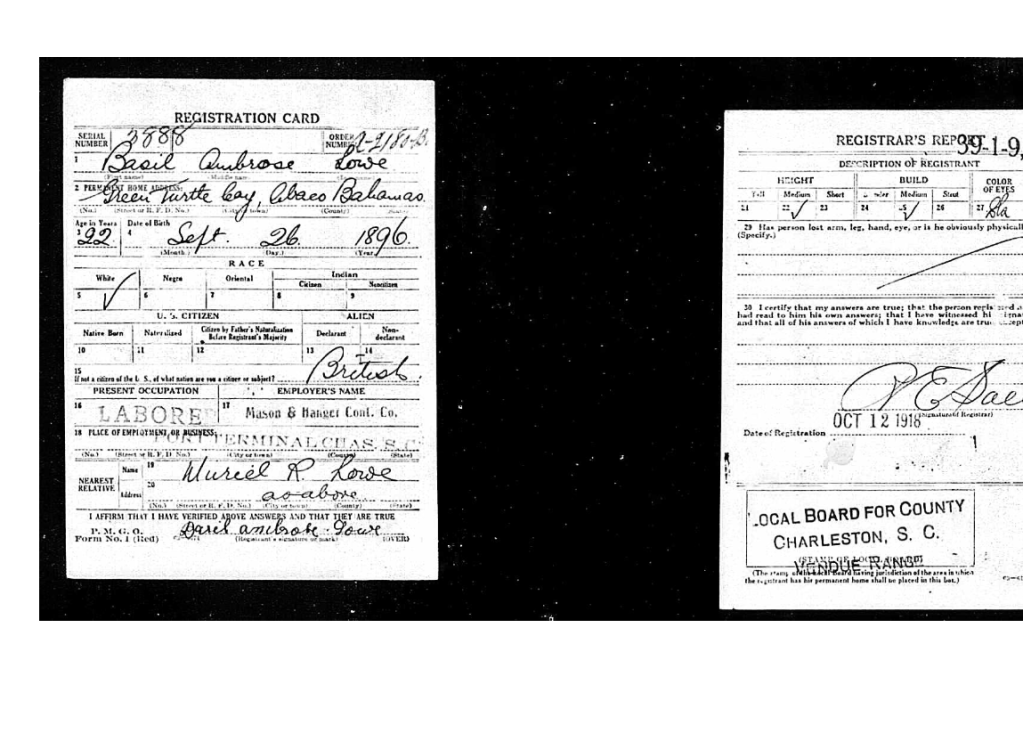 REGISTRATION CARD
SERIAL NUMBER 3888 ORDER NUMBER
1 Basil Ambrose Lowe
(First name) (Middle name)
2 PERMANENT HOME ADDRESS:
Green Turtle Cay, Abaco Bahamas.
(No.) (Street or R. F. D. No.) (City or town) (County) (State)
Age in Years Date of Birth
3 22 4 Sept. 26 1896
(Month.) (Day.) (Year.)
RACE
White Negro Oriental Indian
Citizen Noncitizen
5 6 7 8 9
U. S. CITIZEN ALIEN
Native Born Naturalized Citizen by Father's Naturalization Before Registrant's Majority Declarant Non-declarant
10 11 12 13 14
15
If not a citizen of the U. S., of what nation are you a citizen or subject? British
PRESENT OCCUPATION EMPLOYER'S NAME
16 LABORER 17 Mason & Hanger Cont. Co.
18 PLACE OF EMPLOYMENT OR BUSINESS:
PORT TERMINAL CHAS. S.C.
(No.) (Street or R. F. D. No.) (City or town) (County) (State)
NEAREST RELATIVE Name 19 Muriel R. Lowe
Address 20 as above
(No.) (Street or R. F. D. No.) (City or town) (County) (State)
I AFFIRM THAT I HAVE VERIFIED ABOVE ANSWERS AND THAT THEY ARE TRUE
P. M. G. O.
Form No. 1 (Red) Basil Ambrose Lowe
(Registrant's signature or mark) (OVER)
REGISTRAR'S REPORT 39-1-9,
DESCRIPTION OF REGISTRANT
HEIGHT BUILD COLOR OF EYES
Tall Medium Short Slender Medium Stout
21 22 23 24 25 26 27
29 Has person lost arm, leg, hand, eye, or is he obviously physicall
(Specify.)
30 I certify that my answers are true; that the person registered
had read to him his own answers; that I have witnessed hi
and that all of his answers of which I have knowledge are true
(Signature of Registrar)
Date of Registration OCT 12 1918
1
LOCAL BOARD FOR COUNTY
CHARLESTON, S. C.
(STAMP OF LOCAL BOARD)
VENDUE RANGE
(The stamp of the Local Board having jurisdiction of the area in which
the registrant has his permanent home shall be placed in this box.)